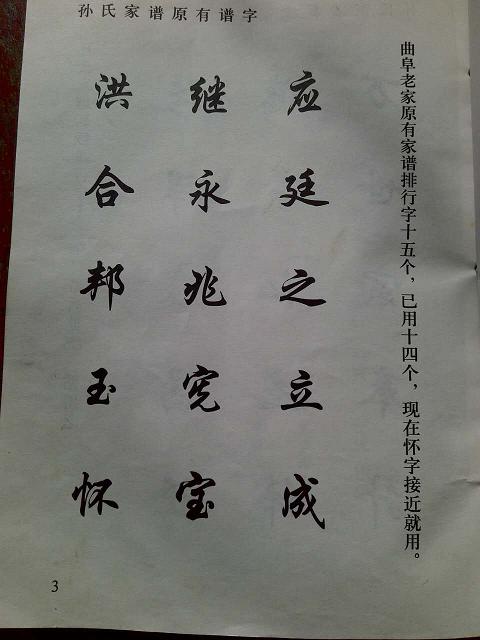 孙氏家谱原有谱字
曲阜老家原有家谱排行字十五个，已用十四个，现在怀字接近就用。
应廷之立成
继永兆宪宝
洪合邦玉怀
3